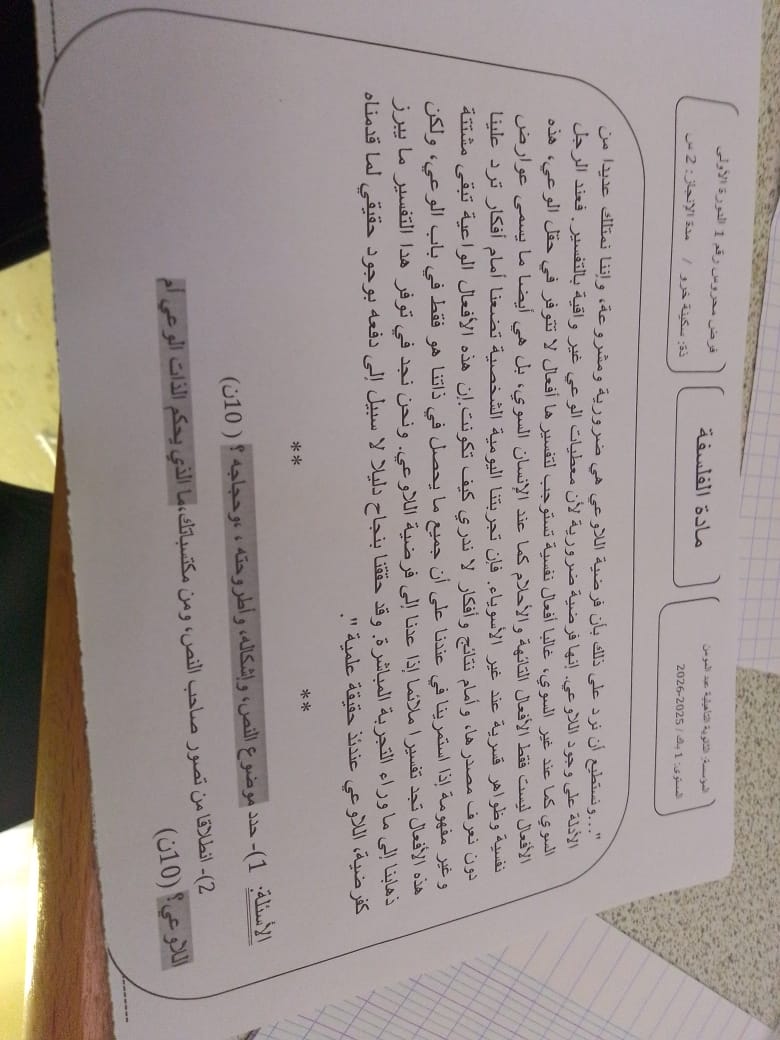 المؤسسة: الثانوية التأهيلية عبد المومن
المستوى: 1 باك / 2025-2026
مادة الفلسفة
فرض محروس رقم 1 الدورة الأولى
ذة: سكينة خرو / مدة الإنجاز: 2 س
"...ونستطيع أن نرد على ذلك بأن فرضية اللاوعي هي ضرورية ومشروعة، وإننا نمتلك عديدا من
الأدلة على وجود اللاوعي. إنها فرضية ضرورية لأن معطيات الوعي غير واقية بالتفسير. فعند الرجل
السوي كما عند غير السوي، غالبا أفعال نفسية تستوجب لتفسيرها أفعال لا تتوفر في حقل الوعي، هذه
الأفعال ليست فقط الأفعال التائهة والأحلام كما عند الإنسان السوي، بل هي أيضا ما يسمى عوارض
نفسية وظواهر قسرية عند غير الأسوياء. فإن تجربتنا اليومية الشخصية تضعنا أمام أفكار ترد علينا
دون نعرف مصدرها، وأمام نتائج وأفكار لا ندري كيف تكونت.إن هذه الأفعال الواعية تبقى مشتتة
و غير مفهومة إذا استمرينا في عندنا على أن جميع ما يحصل في ذاتنا هو فقط في باب الوعي، ولكن
هذه الأفعال تجد تفسيرا ملائما إذا عدنا إلى فرضية اللاوعي. ونحن نجد في توفر هذا التفسير ما يبرز
ذهابنا إلى ما وراء التجربة المباشرة. وقد حققنا بنجاح دليلا لا سبيل إلى دفعه بوجود حقيقي لما قدمناه
كفرضية، اللاوعي عندئذ حقيقة علمية".
** **
الأسئلة. 1)- حدد موضوع النص، وإشكاله، وأطروحته ، ،وحجاجه ؟ (10ن)
2)- انطلاقا من تصور صاحب النص، ومن مكتسباتك،ما الذي يحكم الذات الوعي أم
اللاوعي؟ (10ن)